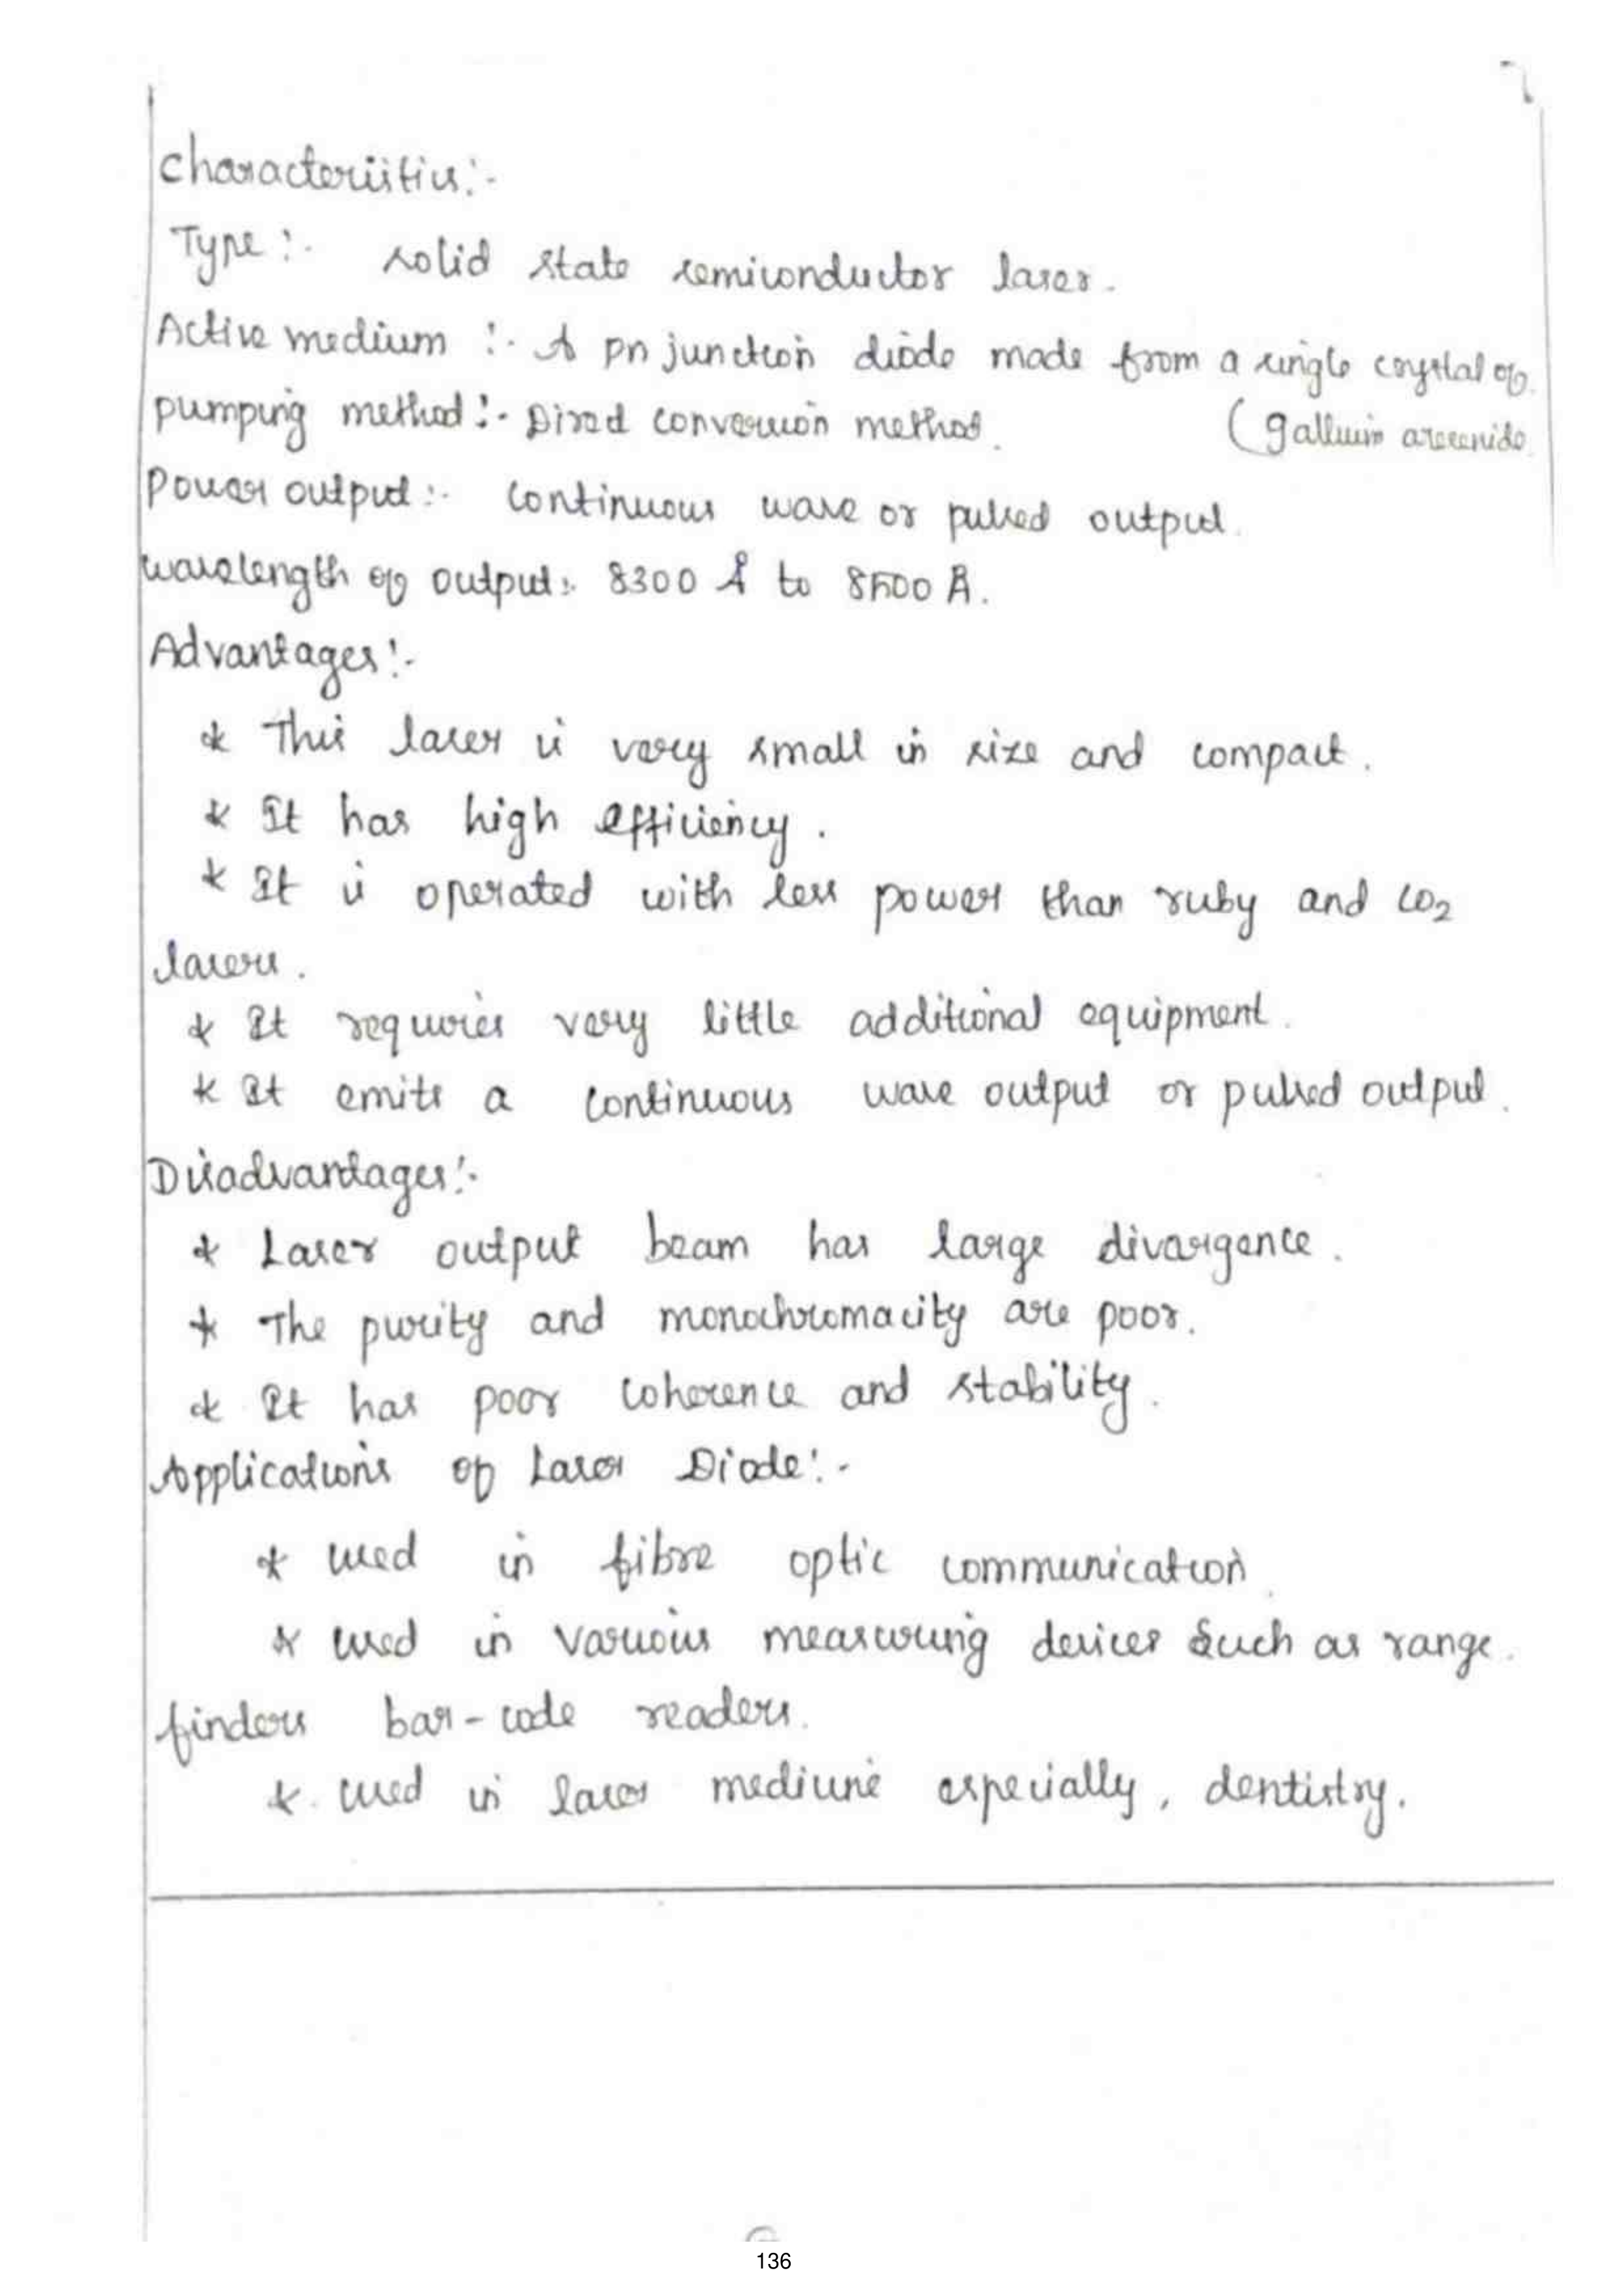 Characteristics:-
Type:- solid state semiconductor laser.
Active medium:- A pn junction diode made from a single crystal of
pumping method:- Direct conversion method. (gallium arsenide.
Power output:- continuous wave or pulsed output.
wavelength of output:- 8300 Å to 8500 Å.
Advantages:-
* This laser is very small in size and compact.
* It has high efficiency.
* It is operated with less power than ruby and CO2
lasers.
* It requires very little additional equipment.
* It emits a continuous wave output or pulsed output.
Disadvantages:-
* Laser output beam has large divergence.
* The purity and monochromacity are poor.
* It has poor coherence and stability.
Applications of Laser Diode:-
* used in fibre optic communication.
* used in various measuring devices such as range.
finders bar-code readers.
* used in laser medicine especially, dentistry.
136